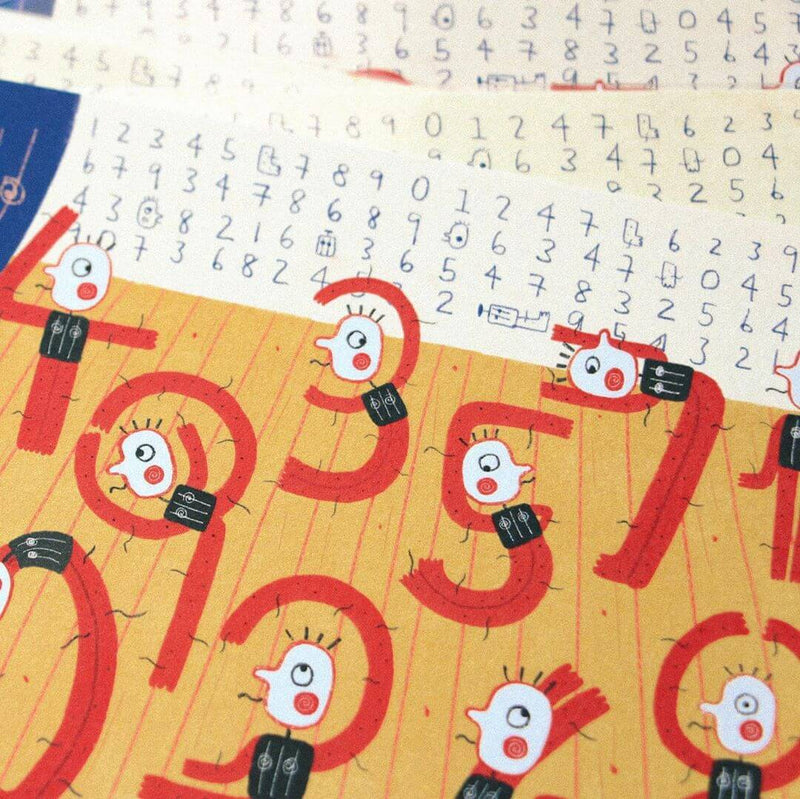 9 3 4 7 8 6 8 9 6 3 4 7 0 4 5 7
2 1 6 3 6 5 4 7 8 3 2 5 6 4 3
3 4 5 7 8 9
2 9 5 4 3 2
7 8 9 0 1 2 4 7 6 2 3 9
6 3 4 7 0 4
3 2 2 5 6
1 2 3 4 5 7 8 9 0 1 2 4 7 6 2 3 9
6 7 9 3 4 7 8 6 8 9 6 3 4 7 0 4 5
4 3 8 2 1 6 3 6 5 4 7 8 3 2 5 6 4
0 7 3 6 8 2 4 2 9 5 4 3 2 1
4 3 7 1
9 5
0 2